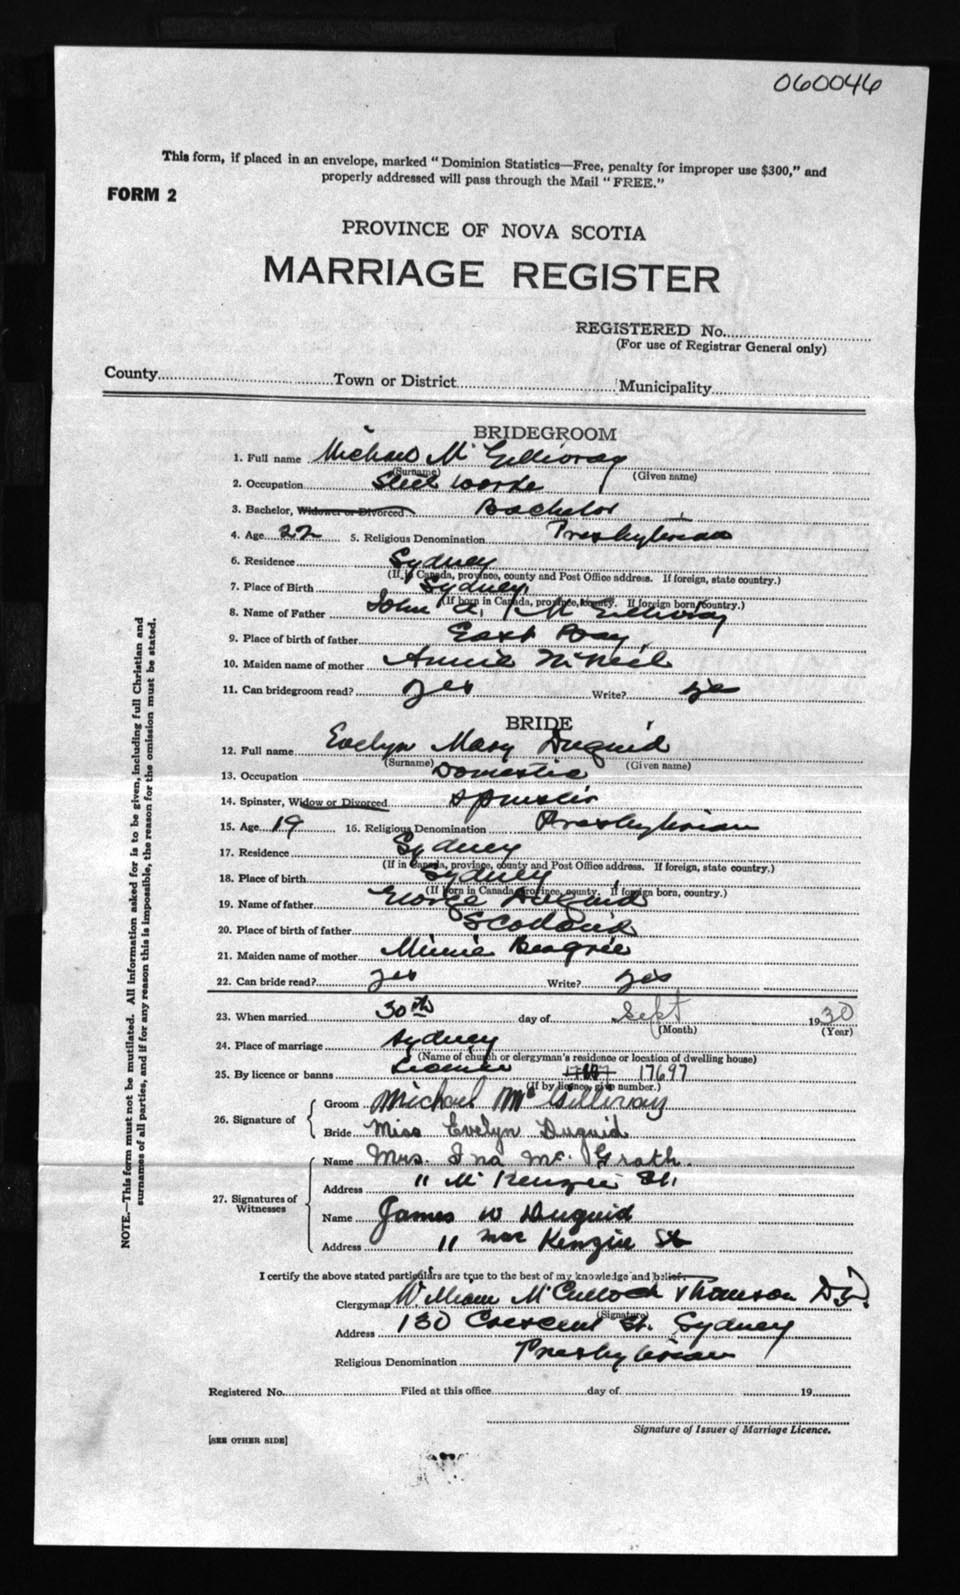 060046
This form, if placed in an envelope, marked "Dominion Statistics—Free, penalty for improper use $300," and
properly addressed will pass through the Mail "FREE."
FORM 2
PROVINCE OF NOVA SCOTIA
MARRIAGE REGISTER
REGISTERED No.
(For use of Registrar General only)
County Town or District Municipality
BRIDEGROOM
1. Full name Michael Mc Gillivray
(Surname) (Given name)
2. Occupation Steel Worke
3. Bachelor, Widower or Divorced Bachelor
4. Age 22 5. Religious Denomination Presbyterian
6. Residence Sydney
(If in Canada, province, county and Post Office address. If foreign, state country.)
7. Place of Birth Sydney
(If born in Canada, province, county. If foreign born, country.)
8. Name of Father John A. McGillivray
9. Place of birth of father East Bay
10. Maiden name of mother Annie McNeil
11. Can bridegroom read? yes Write? yes
BRIDE
12. Full name Evelyn Mary Duguid
(Surname) (Given name)
13. Occupation Domestic
14. Spinster, Widow or Divorced Spinster
15. Age 19 16. Religious Denomination Presbyterian
17. Residence Sydney
(If in Canada, province, county and Post Office address. If foreign, state country.)
18. Place of birth Sydney
(If born in Canada province, county. If foreign born, country.)
19. Name of father George Duguid
20. Place of birth of father Scotland
21. Maiden name of mother Minnie Beagrie
22. Can bride read? yes Write? yes
23. When married 30th day of Sept 1930
(Month) (Year)
24. Place of marriage Sydney
(Name of church or clergyman's residence or location of dwelling house)
25. By licence or banns Licence 17697
(If by licence, give number.)
26. Signature of
Groom Michael Mc Gillivray
Bride Miss Evelyn Duguid
27. Signatures of Witnesses
Name Mrs. Ina Mc. Grath.
Address 11 McKenzie St.
Name James W Duguid
Address 11 Mac Kenzie St
I certify the above stated particulars are true to the best of my knowledge and belief.
Clergyman William McCulloch Thomson
(Signature)
Address 130 Crescent St. Sydney
Religious Denomination Presbyterian
Registered No. Filed at this office day of 19
Signature of Issuer of Marriage Licence.
[SEE OTHER SIDE]
NOTE.—This form must not be mutilated. All information asked for is to be given, including full Christian and
surnames of all parties, and if for any reason this is impossible, the reason for the omission must be stated.